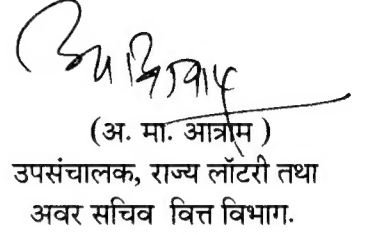 (अ. मा. आत्राम )
उपसंचालक, राज्य लॉटरी तथा
अवर सचिव वित्त विभाग.